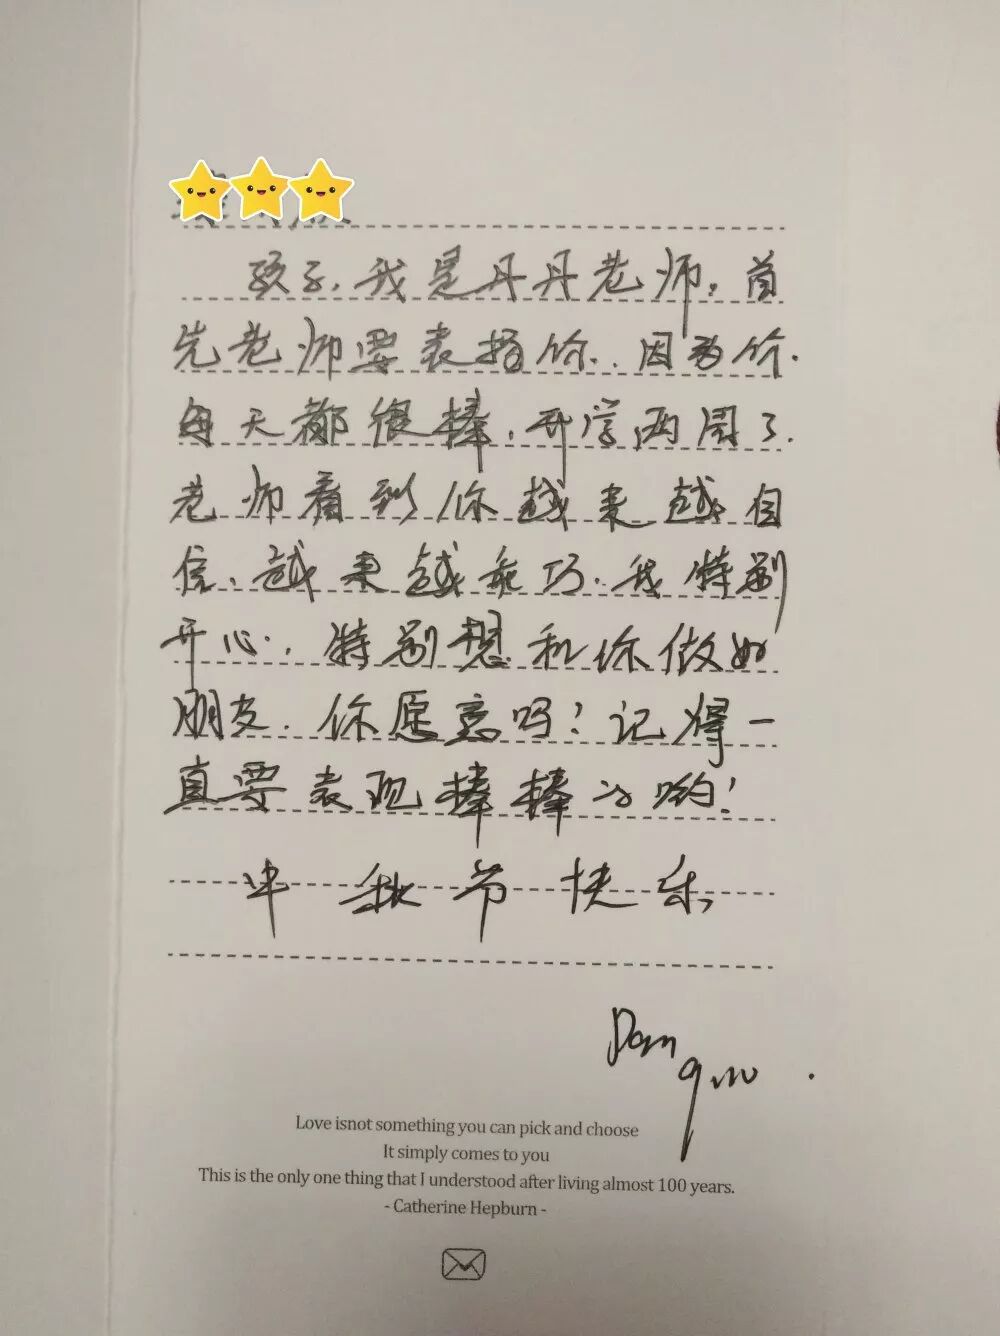 孩子,我是丹丹老师,首
先老师要表扬你.因为你.
每天都很棒,开学两周了.
老师看到你越来越自
信、越来越乖巧.我特别
开心.特别想和你做好
朋友.你愿意吗!记得一
直要表现棒棒的哟!
中秋节快乐
Love isnot something you can pick and choose
It simply comes to you
This is the only one thing that I understood after living almost 100 years.
- Catherine Hepburn -